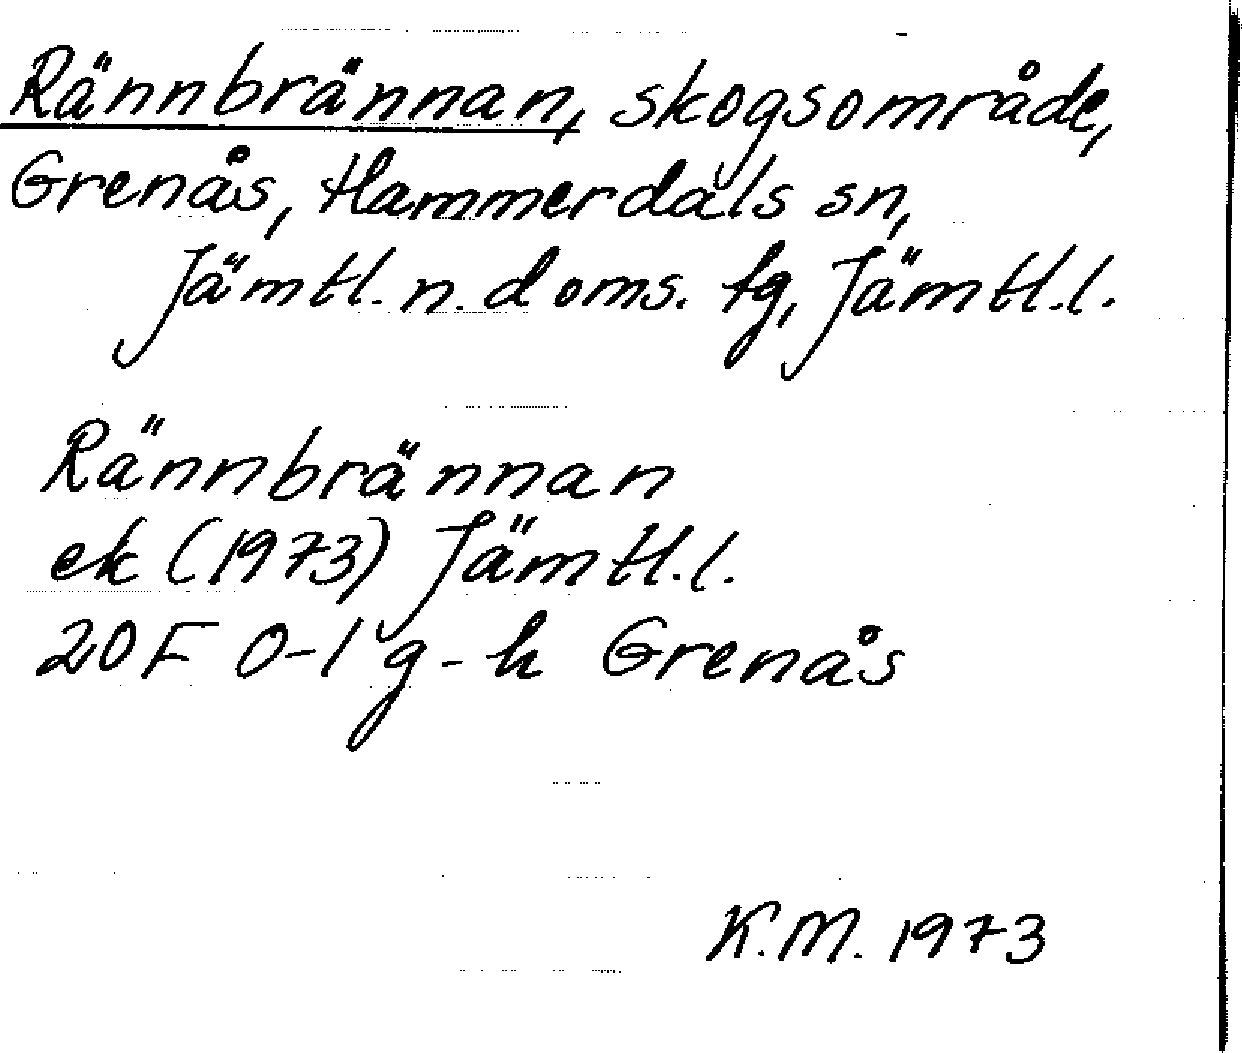 Rännbrännan, skogsområde,
Grenås, Hammerdals sn,
Jämtl. n. doms. tg, Jämtl.l.
Rännbrännan
ek (1973) Jämtl.l.
20F 0-1 g-h Grenås
K.M. 1973